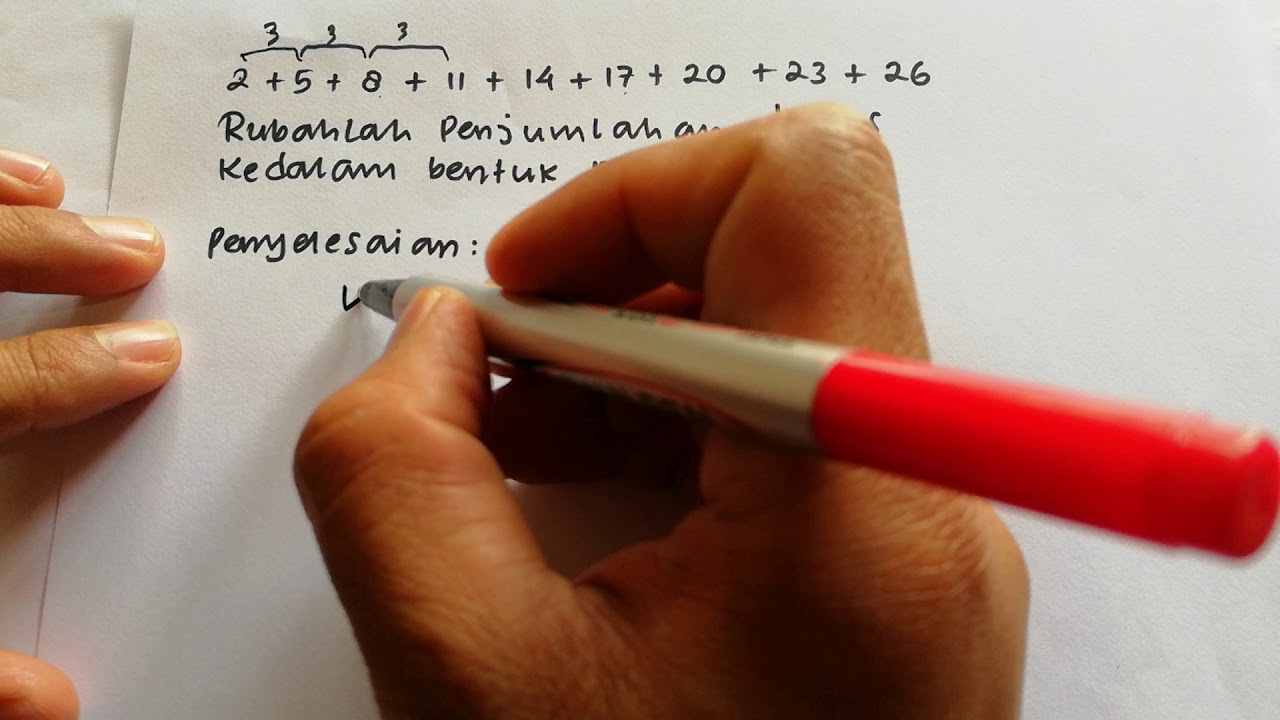 3 3 3
2 + 5 + 8 + 11 + 14 + 17 + 20 + 23 + 26
Rubahlah Penjumlahan
Kedalam bentuk
Penyelesaian: